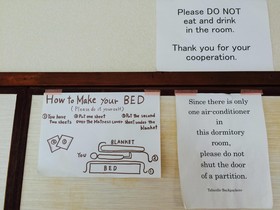 Please DO NOT
eat and drink
in the room.
Thank you for your
cooperation.
How to Make your BED
(Please do it yourself)
① You have
two sheets
② Put one sheet
over the Mattress cover
③ Put the second
sheet under the
blanket
You
BLANKET
BED
Since there is only
one air-conditioner
in this
dormitory
room,
please do not
shut the door
of a partition.